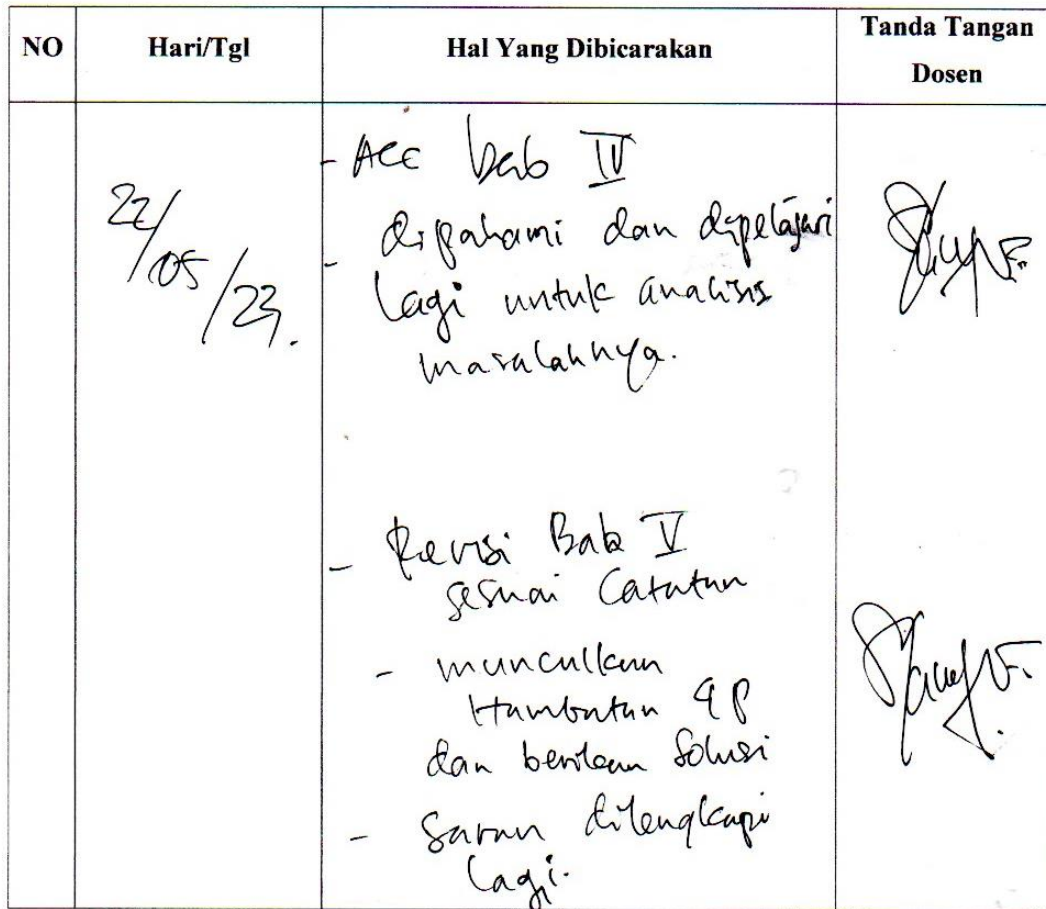 NO Hari/Tgl Hal Yang Dibicarakan Tanda Tangan Dosen
22/05/23.
- Acc bab IV
- dipahami dan dipelajari
lagi untuk analisis
masalahnya.
- Revisi Bab V
sesuai Catatan
- munculkan
Hambatan 4P
dan berikan Solusi
- Saran dilengkapi
lagi.